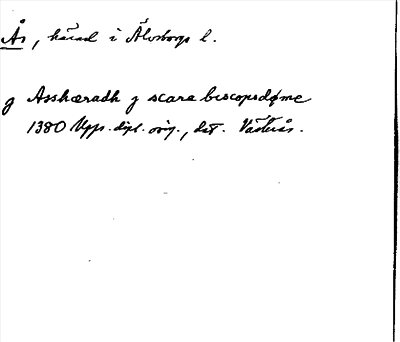 Ås, härad i Älvsborgs l.
g Assheradh j scara bescopsdøme
1380 Upps. dipl. orig., dat. Västerås.